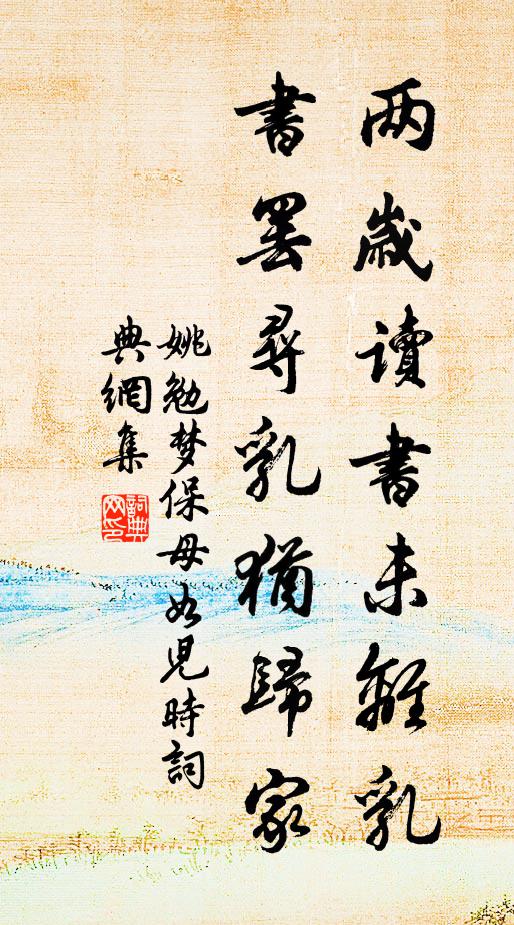 两歲讀書未離乳
書罷尋乳猶歸家
姚勉梦保母如児時詞
典網集
詞典网印